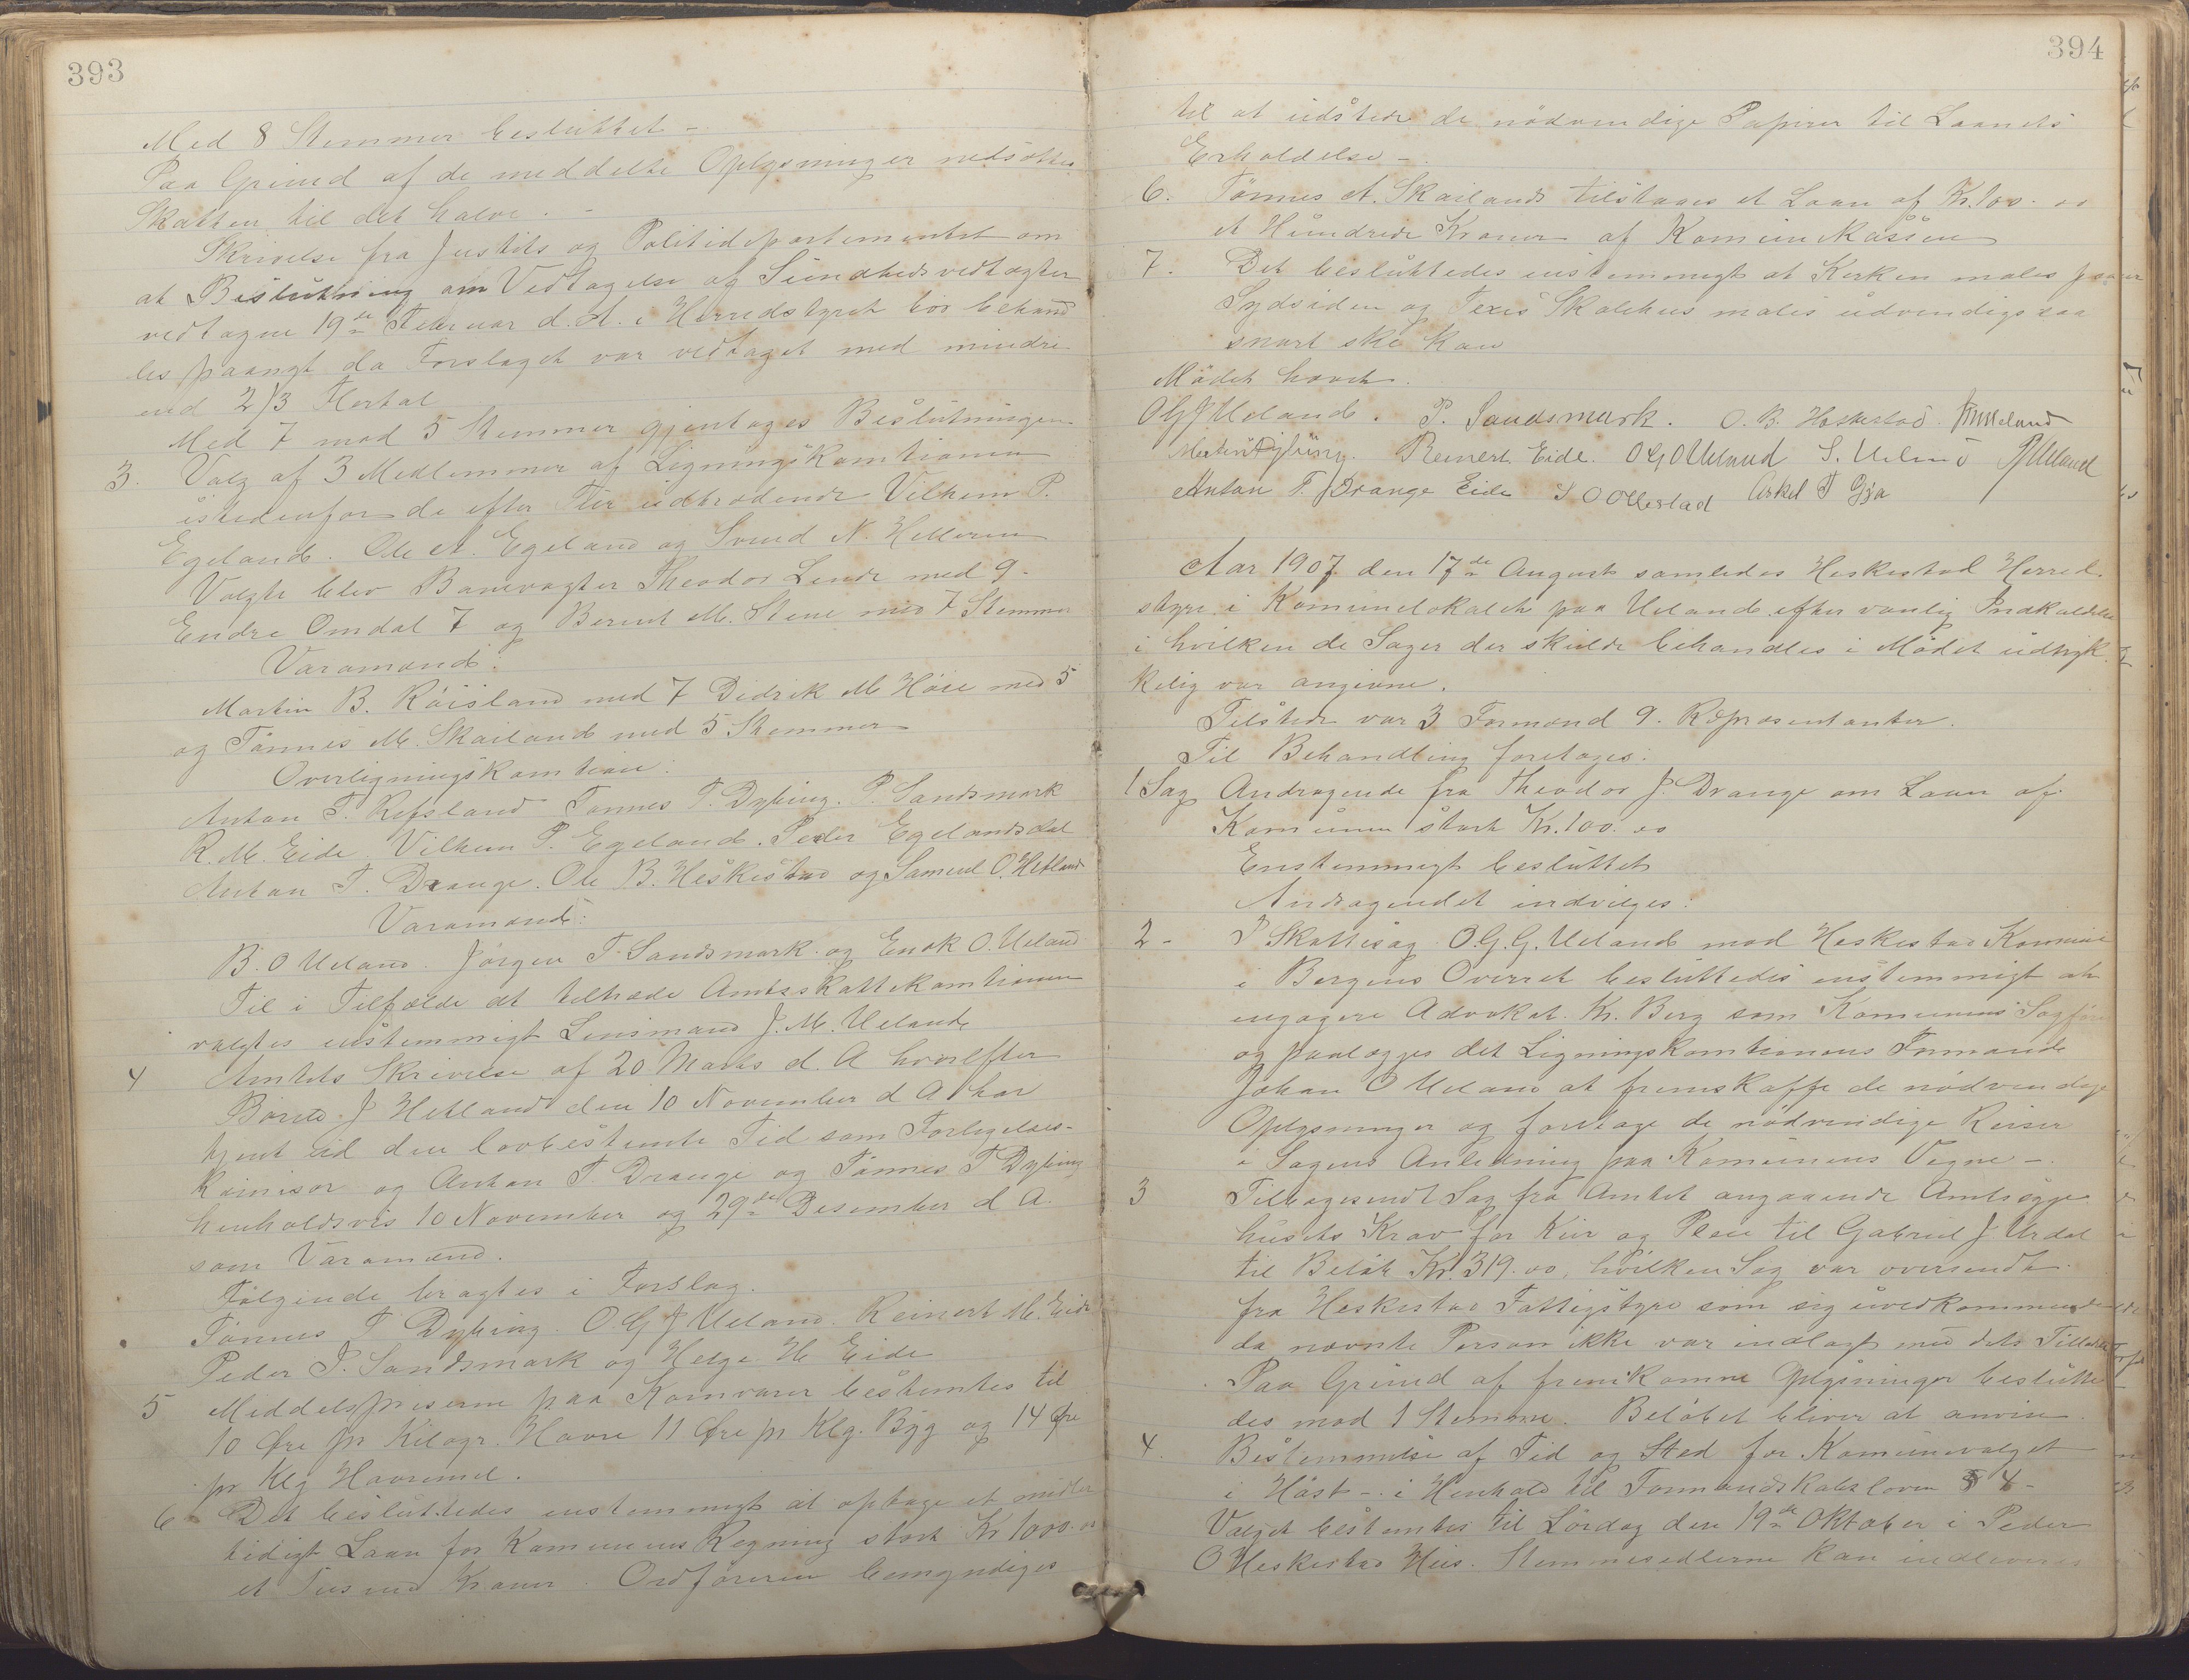 393
Med 8 Stemmer besluttet –
Paa Grund af de meddelte Oplysninger nedsættes
Skatten til det halve. –
Skrivelse fra Justits og Politidepartementet om
at Beslutning om Vedtagelse af Sundhedsvedtægter
vedtagne 19de Februar d. A. i Herredstyret bør behand
les paanyt da Forslaget var vedtaget med mindre
end 2/3 Flertal
Med 7 mod 5 Stemmer gjentages Beslutningen
3. Valg af 3 Medlemmer af Ligningskomtionen
istedenfor de efter Tur udtrædende Vilhem P.
Egeland. Ole A. Egeland og Svend N. Helleren
Valgte blev Banevagter Theodor Lende med 9.
Endre Omdal 7 og Berent M. Stene med 7 Stemmer
Varamænd:
Martin B. Røisland med 7 Didrik M Høse med 5
og Tønnes M. Skailand med 5 Stemmer
Overligningskomtion:
Anton T. Refsland Tønnes T. Dybing. P. Sandsmark
R. M. Eide. Vilhem P. Egeland. Peder Egelandsdal
Anton T. Drange. Ole B. Heskestad og Samuel O. Hetland
Varamænd:
B. O Ueland. Jørgen T. Sandsmark og Enok O. Ueland
Til i Tilfælde at tiltræde Amtsskattekomtionen
valgtes enstemmigt Lensmand J. M. Ueland
4 Amtets Skrivelse af 20 Marts d. A hvorefter
J Hetland den 10 November d A har
tjent ud den lovbestemte Tid som Forligelses-
komisær og Anton T. Drange og Tønnes T Dybing
henholdsvis 10 November og 29de Desember d A.
som Varamænd.
Følgende bragtes i Forslag.
Tønnes T Dybing. O. G J Ueland. Reinert M. Eide
Peder P. Sandsmark og Helge H Eide
5 Middelspriserne paa Kornvarer bestemtes til
10 Øre pr Kilogr. Havre 11 Øre pr Klg. Byg og 14 Øre
pr Klg Havremel.
6 Det besluttedes enstemmigt at optage et midler
tidigt Laan for Komunens Regning stort Kr 1000.00
et Tusend Kroner. Ordføreren bemyndiges
394
til at udstede de nødvendige Papirer til Laanets
Erholdelse –
6. Tønnes A. Skailand tilstaaes et Laan af Kr. 100.00
et Hundrede Kroner af Komunekassen
7. Det besluttedes enstemmigt at Kirken males paa
Sydsiden og Texes Skolehus males udvendig saa
snart ske kan
Mødet hævet.
OGJUeland. P. Sandsmark. O. B. Heskestad. JMUeland
Martin Dybing. Reinert Eide. OGOUeland S. Ueland
Anton T. Drange Eide S O Ollestad Askel T Gya
Aar 1907 den 17de August samledes Heskestad Herred
styre i Komunelokalet paa Ueland efter vanlig Indkaldelse
i hvilken de Sager der skulde behandles i Mødet udtryk
kelig var angivne.
Tilstede var 3 Formænd 9. Repræsentanter.
Til Behandling foretages:
1 Sag Andragende fra Theodor J. Drange om Laan af
Komunen stort Kr. 100.00
Enstemmigt besluttet
Andragendet indvilges.
2 – I Skattesag O. G. G. Ueland mod Heskestad Komune
i Bergens Overret besluttedes enstemmigt at
engagere Advokat Kr. Berg som Komunens Sagfører
og paalægges det Ligningskomtionens Formand
Johan O Ueland at fremskaffe de nødvendige
Oplysninger og foretage de nødvendige Reiser
i Sagens Anledning paa Komunens Vegne –
3 Tilbagesendt Sag fra Amtet angaaende Amtssyge
husets Krav for Kur og Pleie til Gabriel J Urdal
til Beløb Kr. 319.00, hvilken Sag var oversendt
fra Heskestad Fattigstyre som sig uvedkommende
da nævnte Person ikke var indlagt med dets Tilladelse
Paa Grund af fremkomne Oplysninger beslutte
des mod 1 Stemme. Beløbet bliver at anvise
4. Bestemmelse af Tid og Sted for Komunevalget
i Høst – i Henhold til Formandskabsloven § 4 –
Valget bestemtes til Lørdag den 19de Oktober i Peder
O Heskestad Hus. Stemmesedlerne kan indleveres